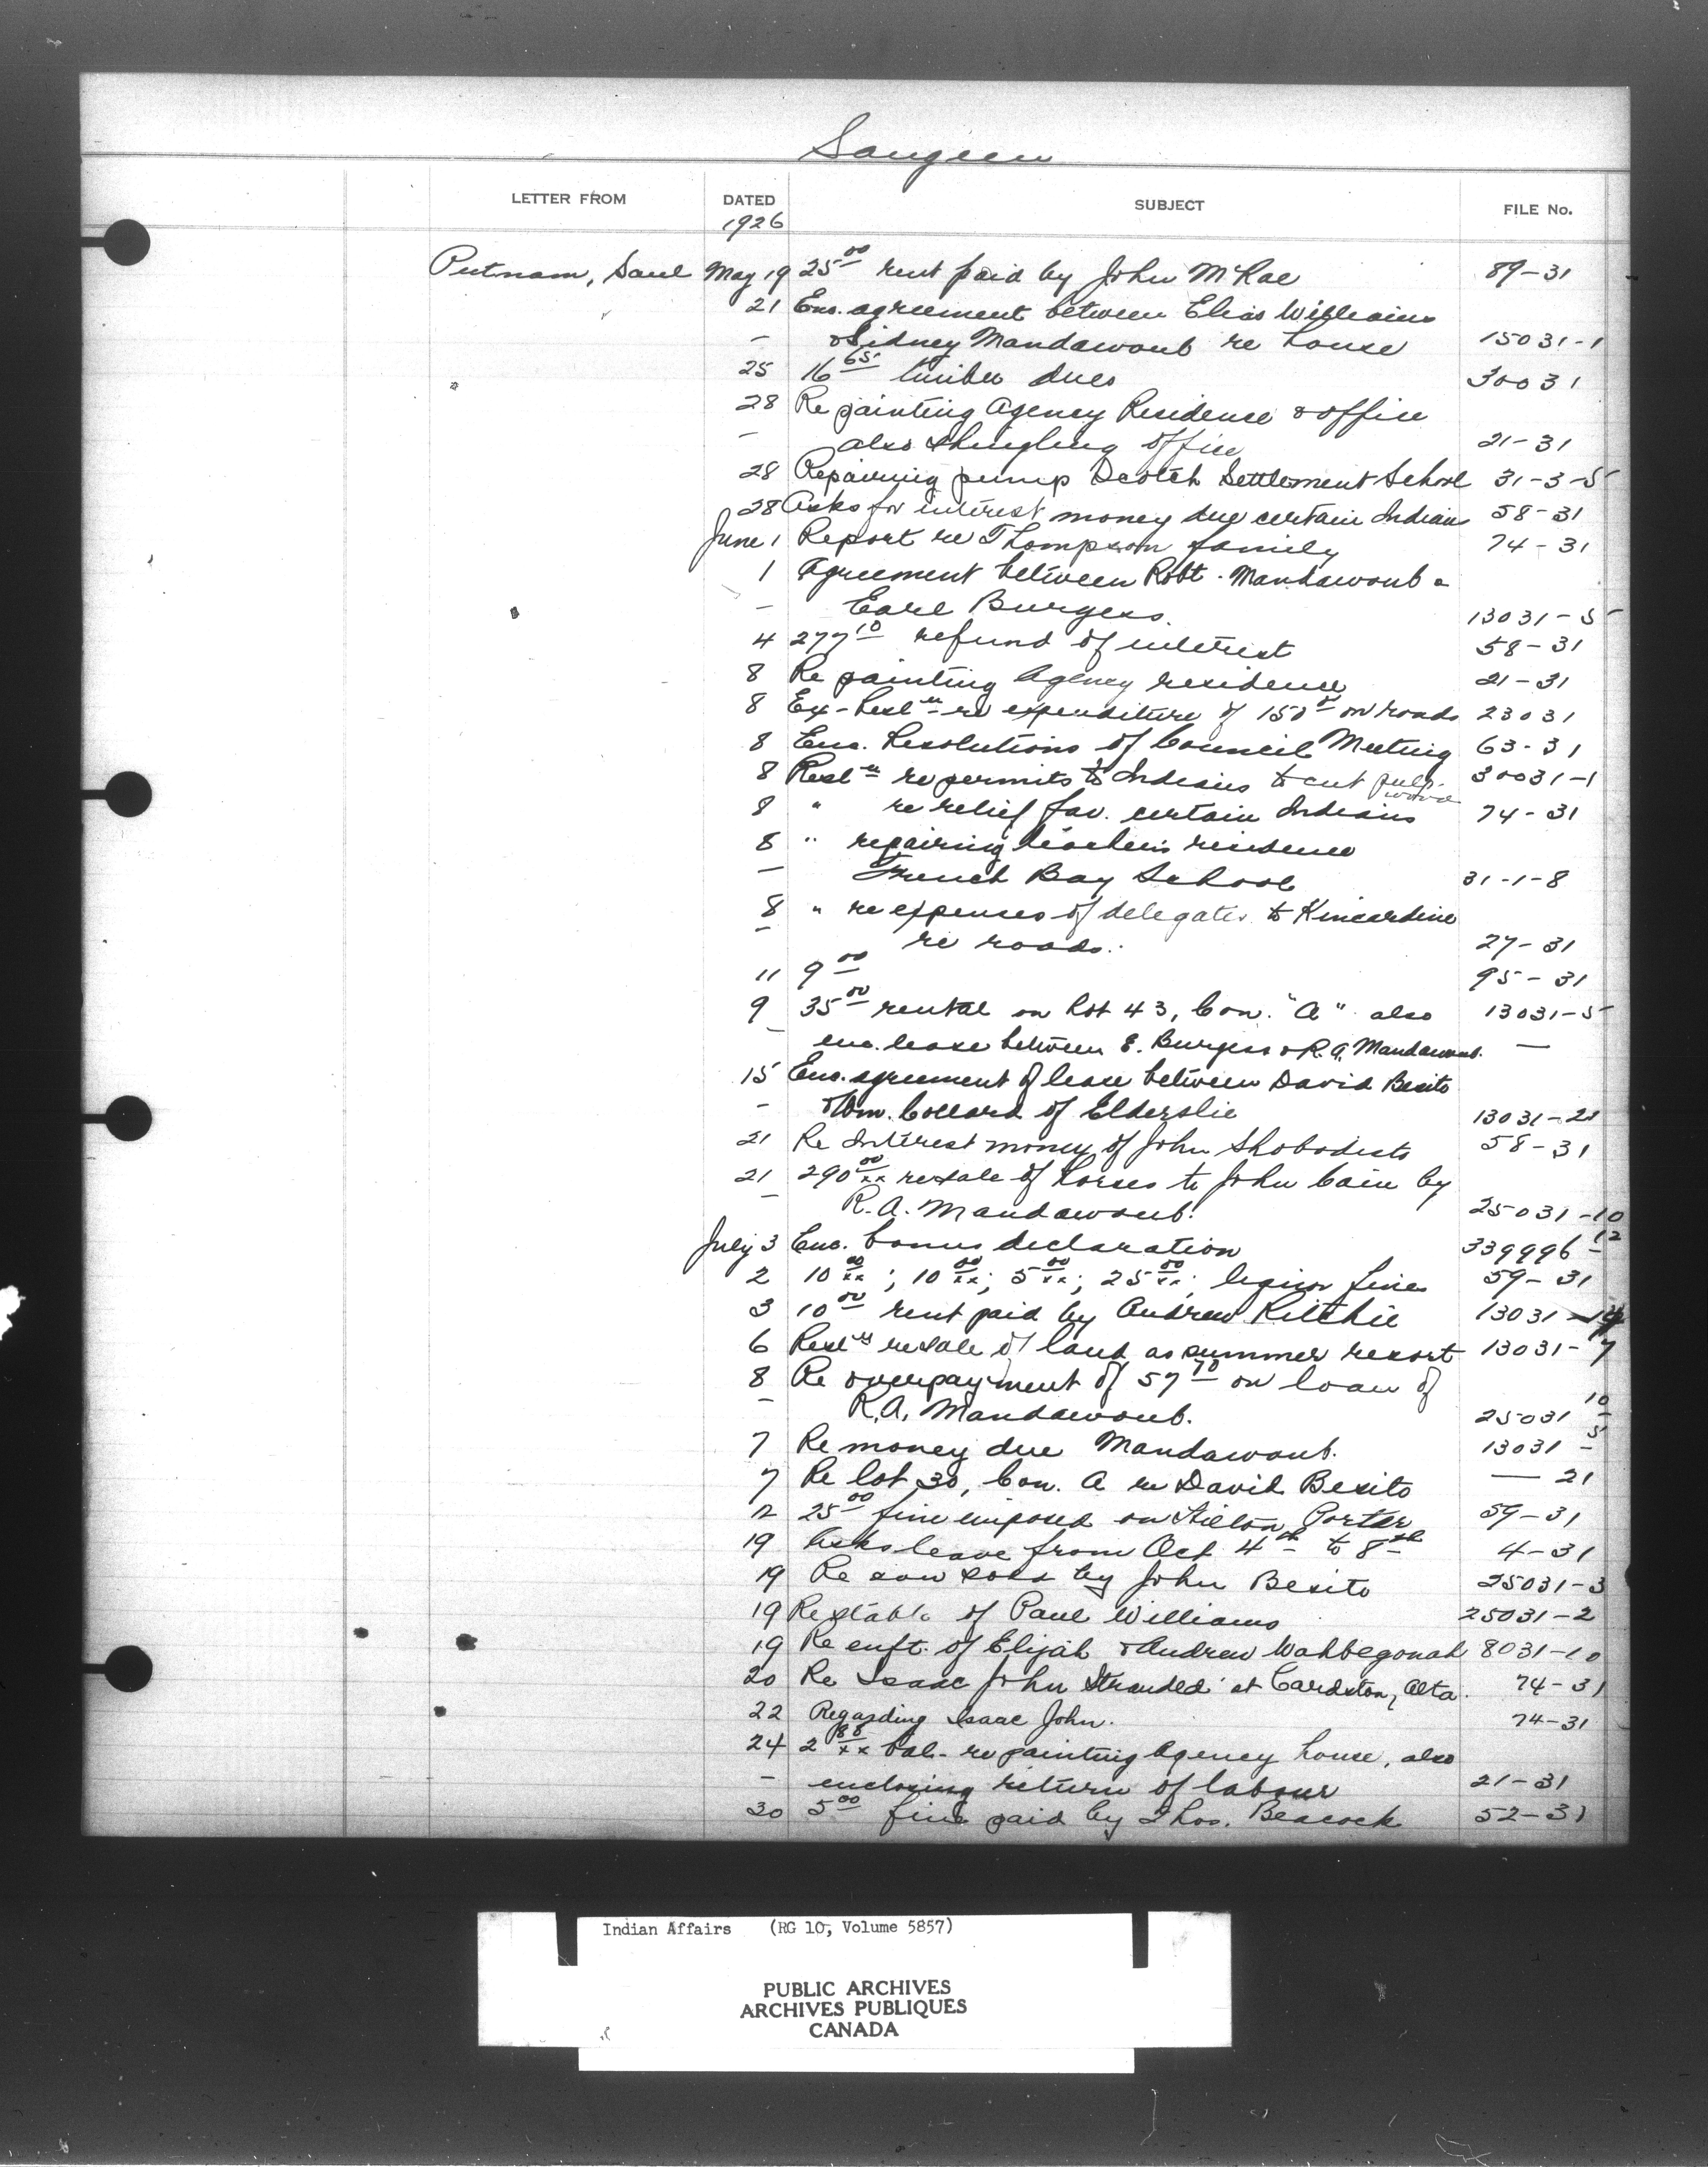 Saugeen
LETTER FROM DATED SUBJECT FILE No.
1926
Putnam, Saul May 19 25 00 rent paid by John McRae 89-31
21 Enc. agreement between Elias Williams
- & Sidney Mandawoub re house 15031-1
25 16 65 timber dues 30031
28 Re painting Agency Residence & office
- also shingling office 21-31
28 Repairing pump Scotch Settlement School 31-3-5
28 Asks for interest money due certain Indians 58-31
June 1 Report re Thompson family 74-31
1 Agreement between Robt. Mandawoub &
- Earl Burgess. 13031-5
4 277 10 refund of interest 58-31
8 Re painting Agency residence 21-31
8 re expenditure of 150 00 on roads 23031
8 Enc. Resolutions of Council Meeting 63-31
8 Resl'n re permits to Indians to cut pulp-wood 30031-1
8 " re relief fav. certain Indians 74-31
8 " repairing teacher's residence
- French Bay School 31-1-8
8 " re expenses of delegates to Kincardine
- re roads. 27-31
11 9 00 95-31
9 35 00 rental on Lot 43, Con. "A" also 13031-5
- enc. lease between E. Burgess & R. A. Mandawoub. —
15 Enc. agreement of lease between David Besito
- & Wm. Collard of Elderslie 13031-21
21 Re Interest money of John Shobodists 58-31
21 290 00 xx re sale of horses to John Cain by
- R. A. Mandawoub. 25031-10
July 3 Enc. bonus declaration 339996-12
2 10 00 xx; 10 00 xx; 5 00 xx; 25 00 xx; liquor fines 59-31
3 10 00 rent paid by Andrew Ritchie 13031-
6 Resl'n re sale of land as summer resort 13031-7
8 Re overpayment of 57 70 on loan of
- R. A. Mandawoub. 25031-10
7 Re money due Mandawoub. 13031-5
7 Re lot 30, Con. A re David Besito — 21
12 25 00 fine imposed on Hilton Porter 59-31
19 Asks leave from Oct 4th to 8th 4-31
19 Re cow sold by John Besito 25031-3
19 Re stable of Paul Williams 25031-2
19 Re enft. of Elijah & Andrew Wahbegonah 8031-10
20 Re Isaac John Stranded at Cardston, Alta. 74-31
22 Regarding Isaac John. 74-31
24 2 88 xx bal. re painting Agency house, also
- enclosing return of labour 21-31
30 5 00 fine paid by Thos. Beacock 52-31
Indian Affairs (RG 10, Volume 5857)
PUBLIC ARCHIVES
ARCHIVES PUBLIQUES
CANADA